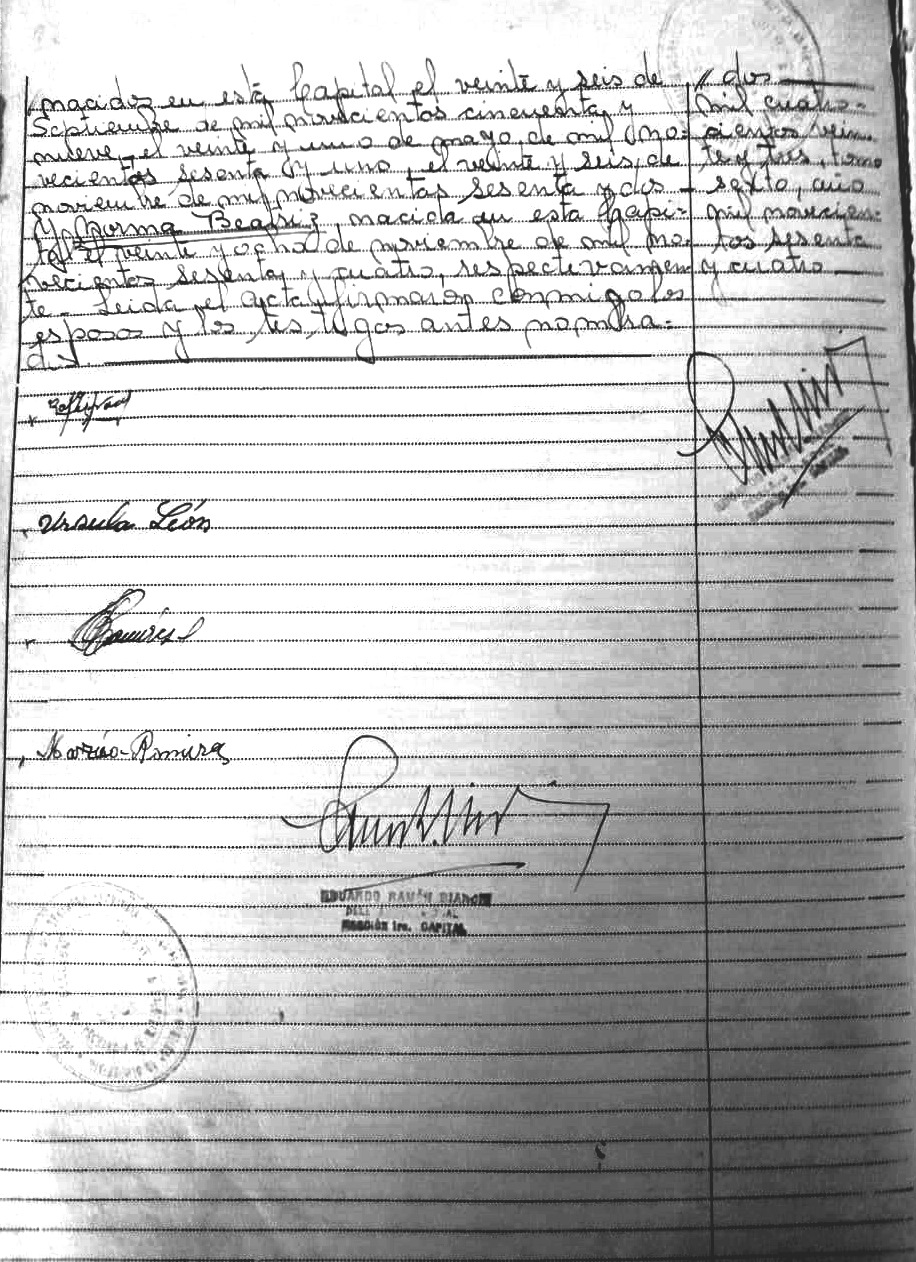 nacidos en esta Capital el veinte y seis de
Septiembre de mil novecientos cincuenta y
nueve, el veinte y uno de mayo de mil no=
vecientos sesenta y uno, el veinte y seis de
noviembre de mil novecientos sesenta y dos
y Norma Beatriz nacida en esta Capi=
tal el veinte y ocho de noviembre de mil no=
vecientos sesenta y cuatro, respectivamen
te.- Leida el acta firmarón conmigo los
esposos y los testigos antes nombra=
dos
// dos
mil cuatro=
cientos vein
te y tres, tomo
sexto, año
mil novecien=
tos sesenta
y cuatro
Ursula León
Ramirez
Narciso Ramirez
EDUARDO RAMÓN BIANCHI
SECCIÓN 1ra. CAPITAL